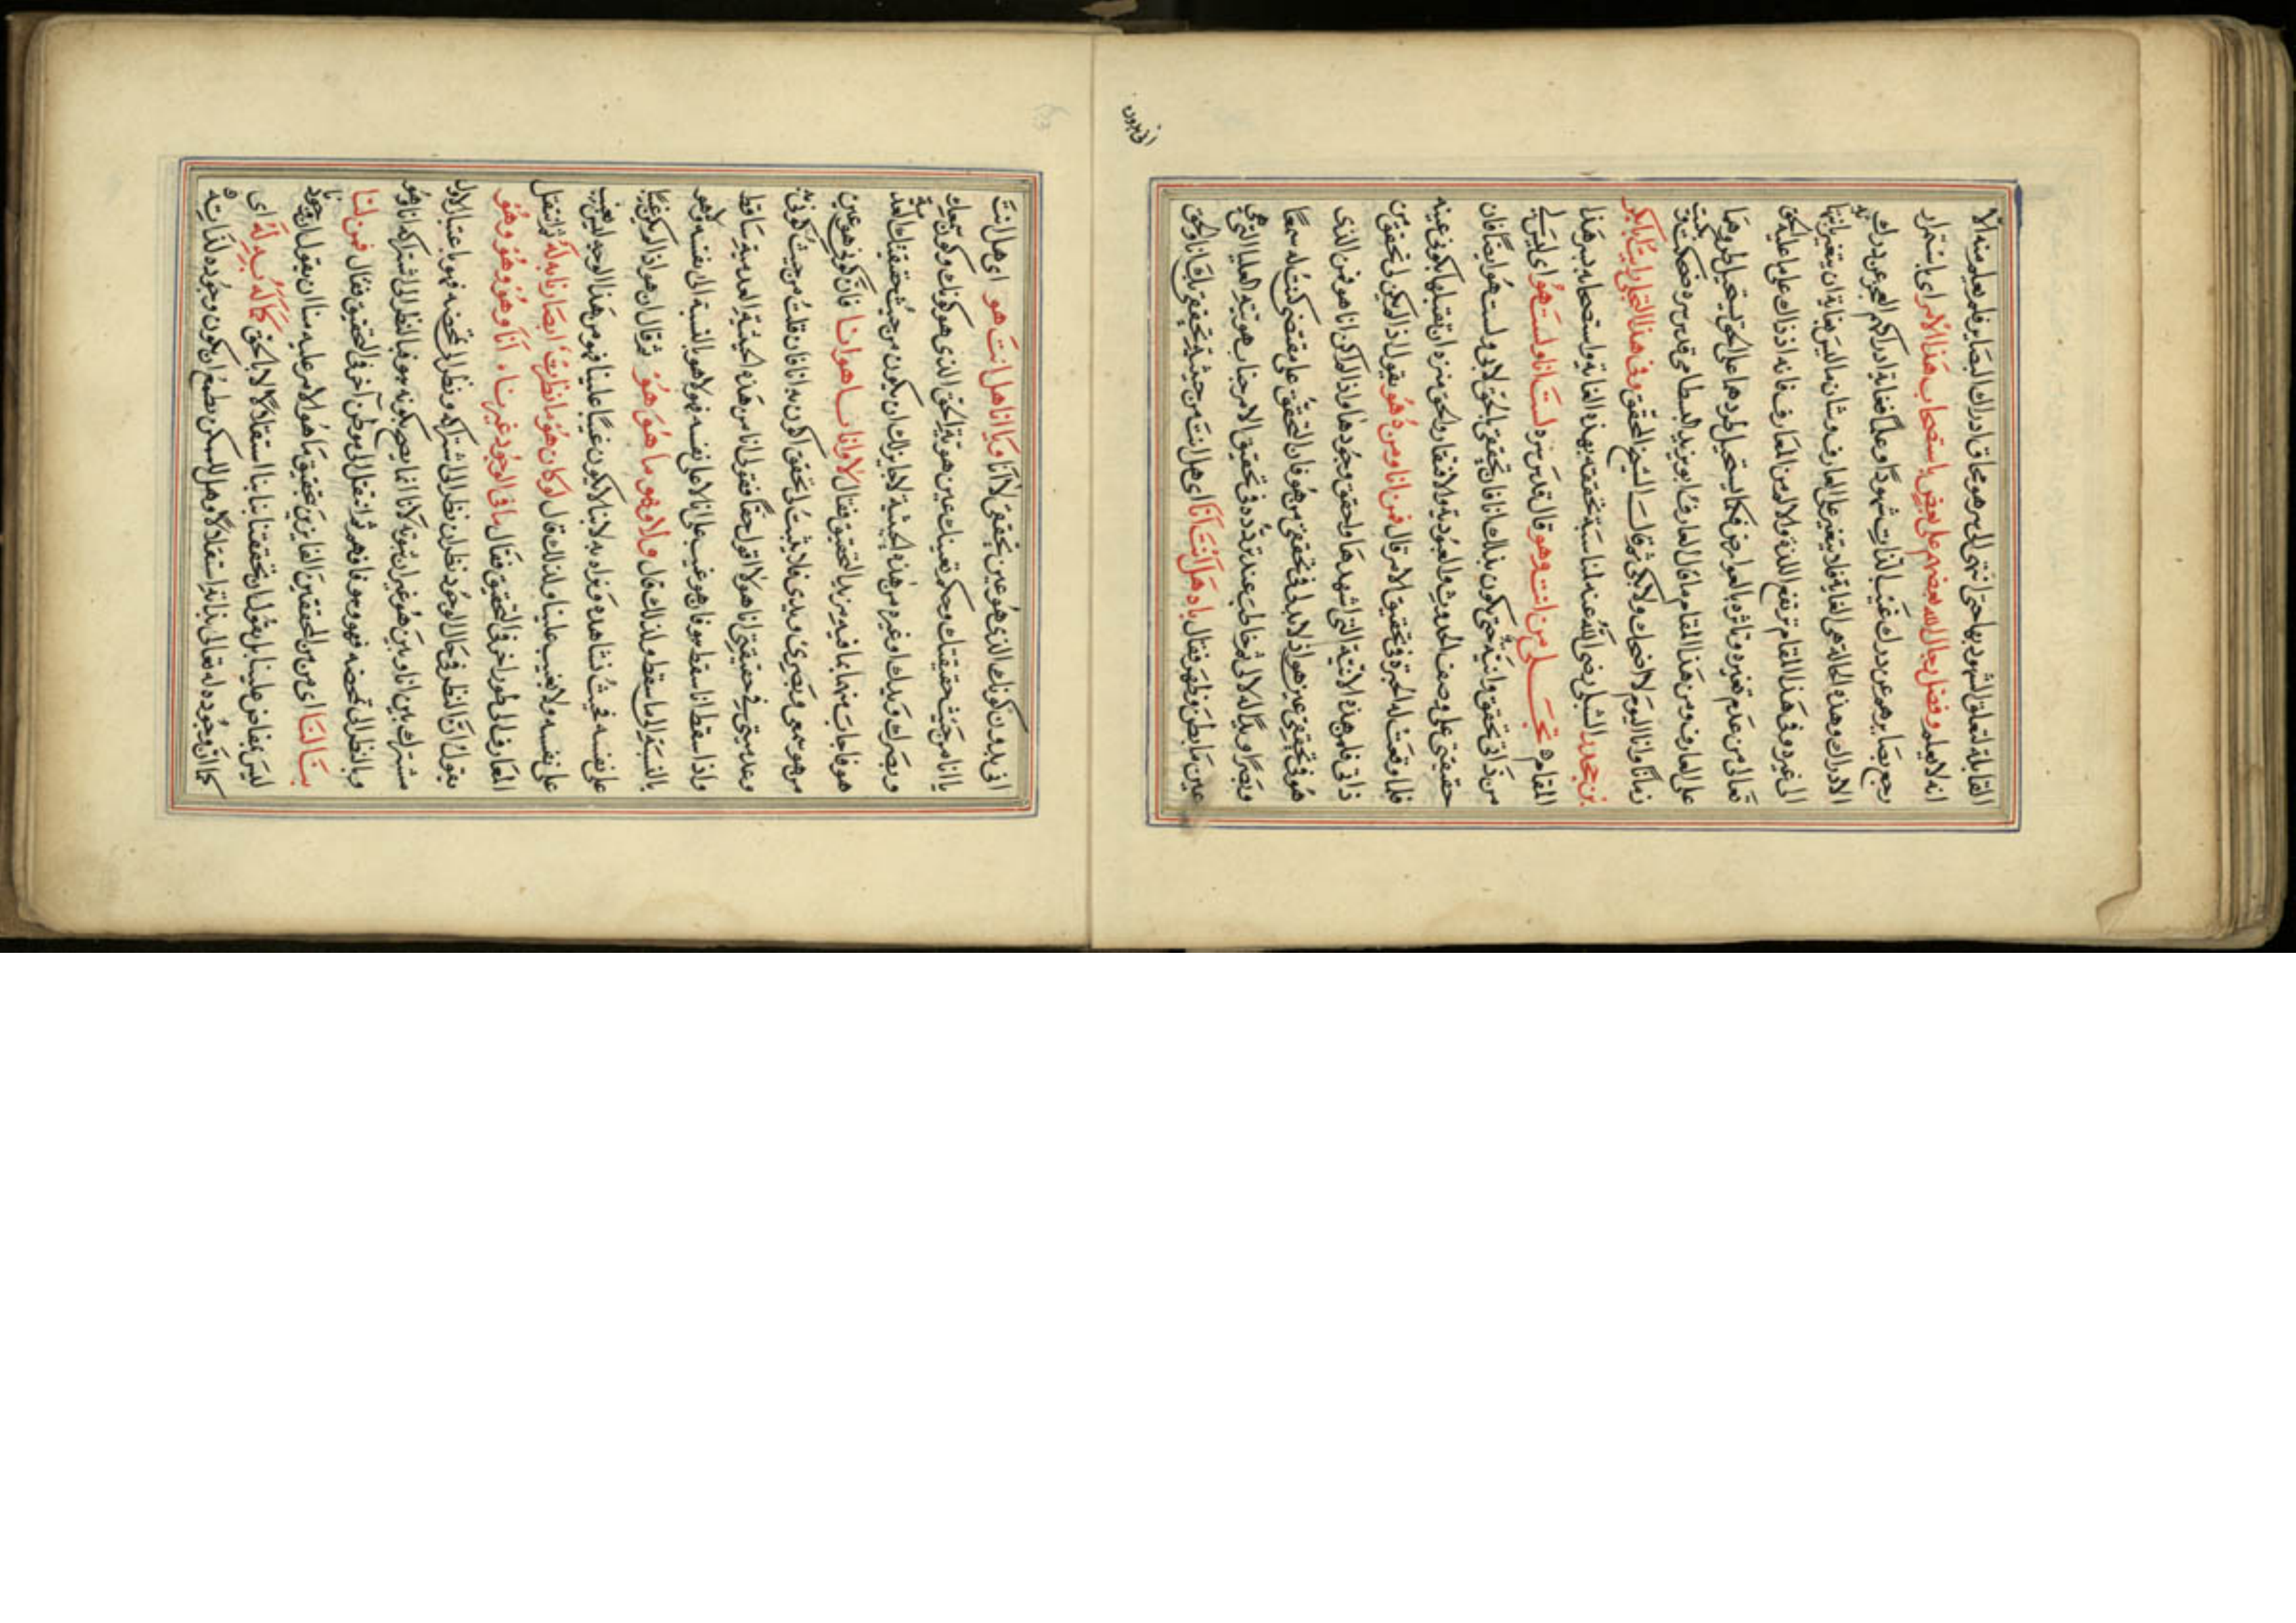 القابلة لتعلق الشهود بها حتى انتهى الى سر هو محاق ادراك البصاير فلم يعلم منه الا
انه لا يعلم وفضل رجال الله بعضهم على بعض باستصحاب هذا الامر اى باستمرار
رجع بصايرهم عن درك غيب الذات شهودًا وعلمًا فغاية ادراكهم العجز عن درك
الادراك وهذه الحالة هى الغاية فلا يتغير على العارف وشان ما ليس بغاية ان يتغير بانتهائه
الى غيره وفى هذا المقام ترتفع اللذة والالم من العارف فانه اذ ذاك على ما عليه الحق
تعالى من عدم تغيره وتاثره بالعوارض فكما يستحيل طردها على الحق يستحيل طروها
على العارف ومن هذا المقام ما قال العارف ابو يزيد البسطامى قدس سره ضحكت وبكيت
زمانًا وانا اليوم لا اضحك ولا ابكى ثم قال الشيخ المحقق وفى هذا التجلى رايت ابا بكر
بن جحدر الشبلى رضى الله عنه لمناسبة تحققه بهذه الغاية واستصحابه سر هذا
المقام تجلى من انت وهو قال قدس سره لست انا ولست هو اى ليس لى
من ذاتى تحقق وانية حتى يكون بذلك انا فان تحققى بالحق لا بى ولست هو ايضًا فان
حقيقتى على وصف الحدوث والعبودية والافتقار والحق منزه ان تقبلها يكونى عينه
فلما وقعت له الحيرة فى تحقيق الامر قال فمن انا ومن هو يقول اذ لم يكن لى تحقق من
ذاتى فلمن هذه الانية التى اشهدها واحقق وجودها واذا لم اكن انا هو فمن الذى
هو فى تحققى عين هو اذ لا بد لى فى تحققى من هو فان التحقق على مقتضى كنت له سمعًا
وبصرًا ويدًا له لا لى ثم خاطب عند تردده فى تحقيق الامر جناب هويته العليا التى هى
عين ما بطن وظهر فقال يا هو هل انت انا اى هل انت من حيثية تحققى بك انا او الحق
انى بدون كونك الذى هو عين تحققى لا انا ويا انا هل انت هو اى هل انت
يا انا من حيث حقيقتك وحكم تعينك عين هوية الحق الذى هو كونك وكون سمعك
وبصرك ويدك او غيره من هذه الحيثية لا جايز لك ان يكون من حيث حقيقتك العدمية
هو فاجاب منهما بما فيه مزيد التحقيق فقال لا وانا ما هو انا فان كونى هو عين
من هو سمعى وبصرى ويدى فلا يثبت لى تحقق اكون به انا فان قلت من حيث كونى به
وعدميتى فى حقيقتى انا هو لا اقول حقًا فقولى انا من هذه الحيثية العدمية ساقط
واذا سقط انا سقط هو فان هو غيب على انا لا على نفسه فهو لا هو بالنسبة الى نفسه ولا هو
بالنسبة الى ما سقط ولذلك قال ولا وهو ما هو هو ثم قال ان هو اذا لم يكن غيبًا
على نفسه فحيث نشاهده ونراه به لا بنا لا يكون غيبًا علينا فهو من هذا الوجه ليس بغيب
على نفسه ولا بغيب علينا ولذلك قال لو كان هو ما نظرت ابصارنا به له ثم انتقل
العارف الى طور اخر فى التحقيق فقال ما فى الوجود غيرنا انا وهو وهو وهو
يقول ان النظر فى حال الوجود نظران نظر الى اشتراكه ونظر الى تمحضه فهو باعتبار الاول
مشترك بين انا وبين هو غير ان ثبوته لانا انما يصح بكونه بهو فبالنظر الى اشتراكه انا وهو
وبالنظر الى تمحضه فهو وهو فافهم ثم انتقل الى موطن آخر فى التحقيق فقال فمن لنا
بنا لنا اى من من المحققين الفايزين بتحقيق ما هو الامر عليه منا ان يقول ان وجودنا
ليس بمفاض علينا بل يقول ان تحققنا بنا استقلالًا لا بالحق كما له به له اى
كما ان وجوده له تعالى بذاته استقلالًا وهل للممكن يطمع ان يكون وجوده لذاته